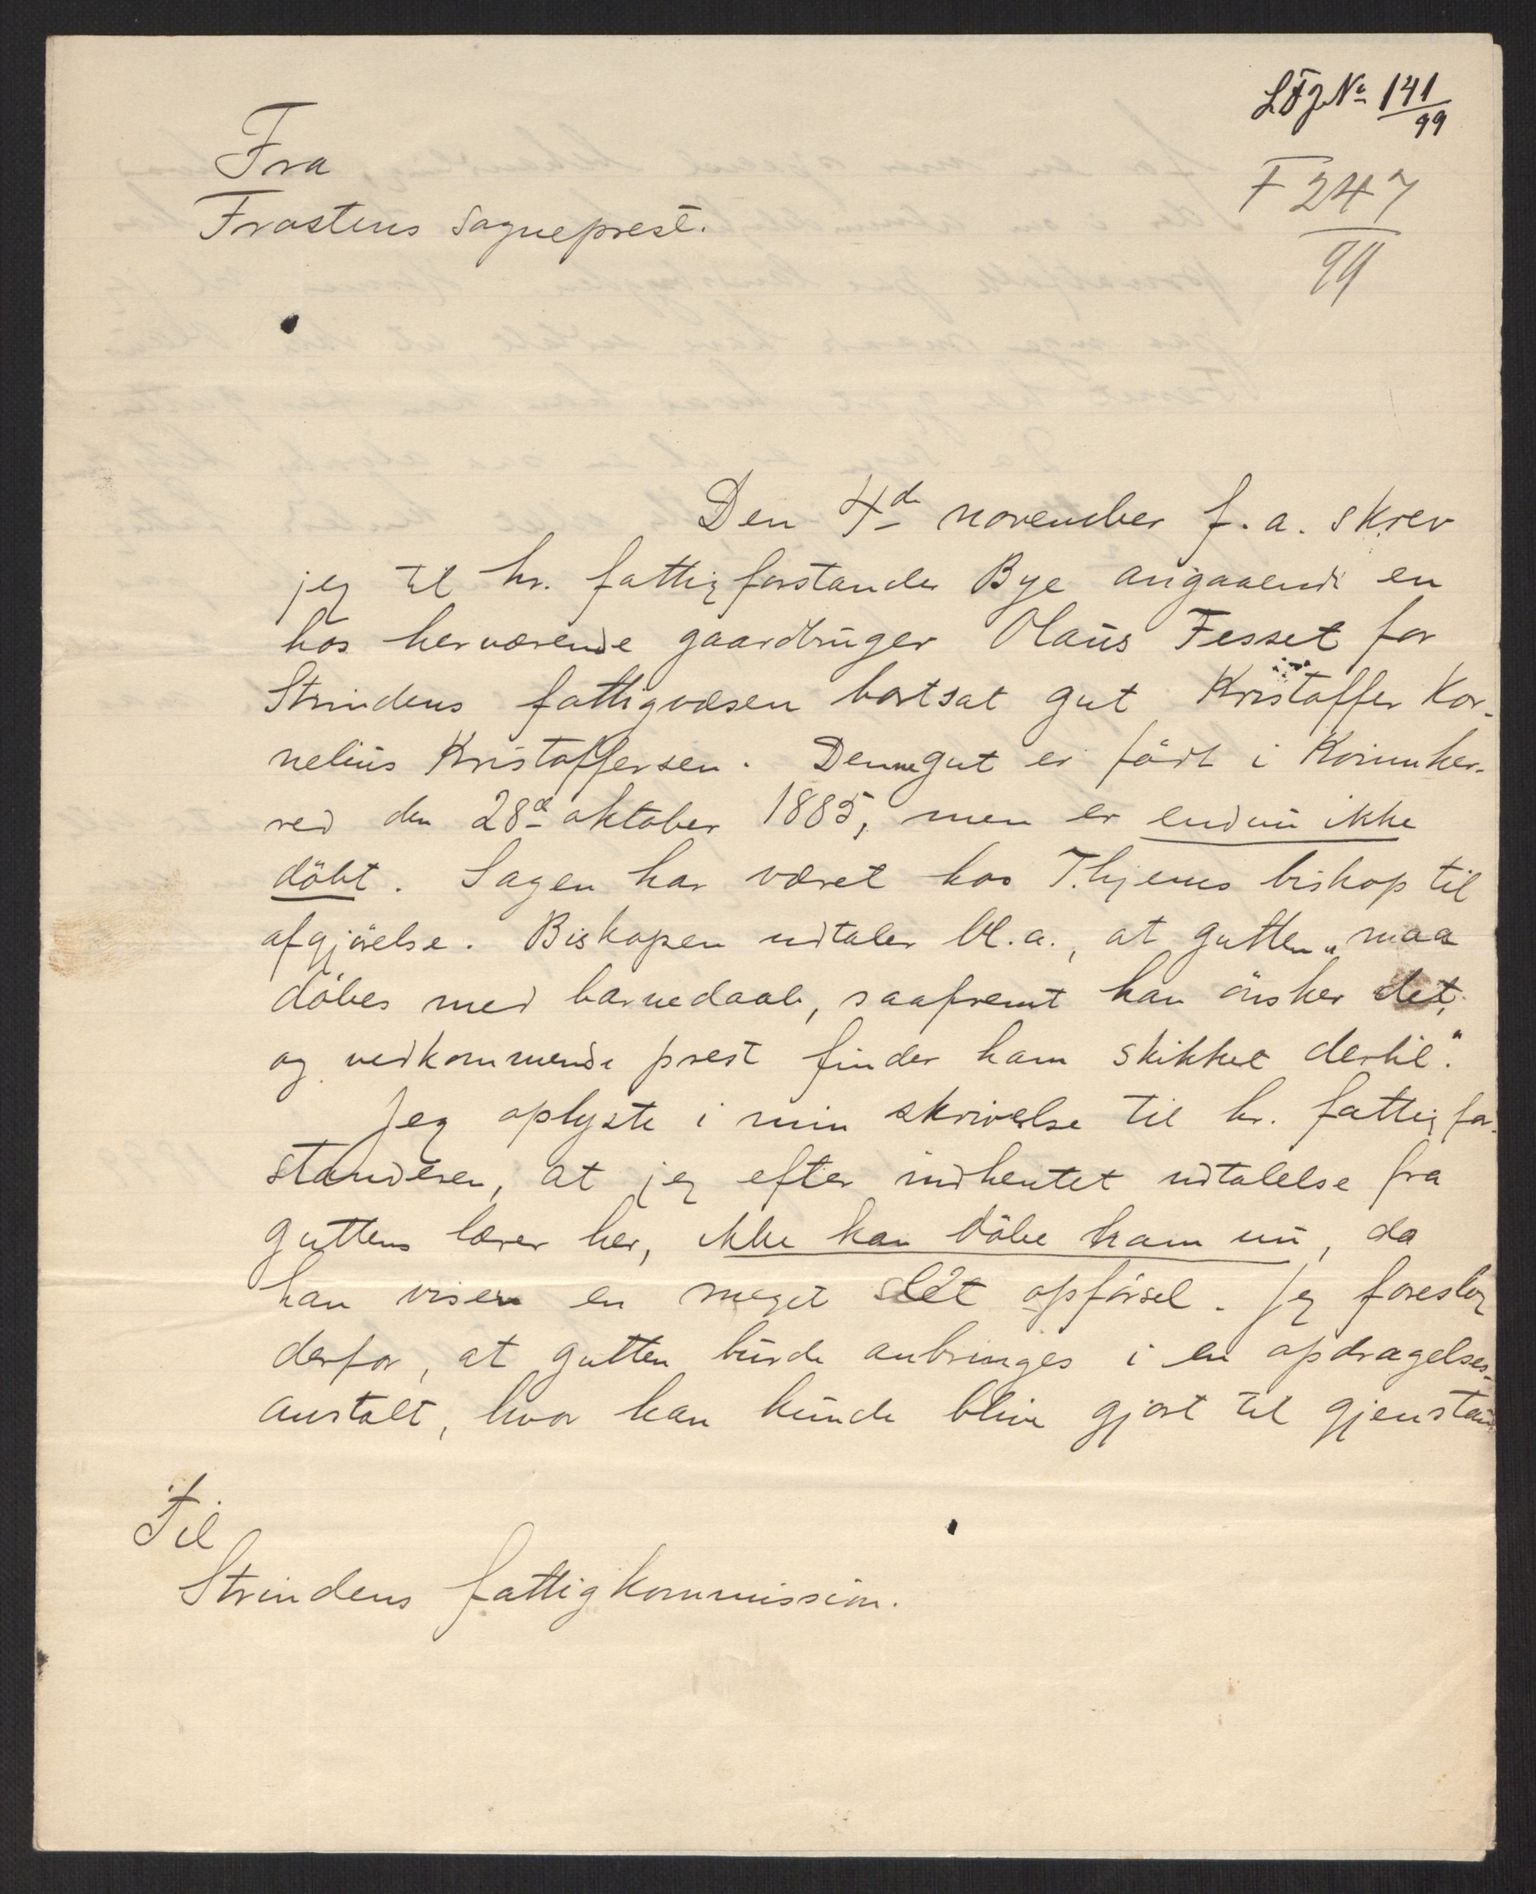 LFJ. No 141/99
Fra
F 247/99
Frostens sogneprest.
Den 4de november f. a. skrev
jeg til hr. fattigforstander Bye angaaende en
hos herværende gaardbruger Olaus Fesset for
Strindens fattigvæsen bortsat gut Kristoffer Kor-
nelius Kristoffersen. Denne gut er födt i Kornnher-
red den 28de oktober 1885, men er endnu ikke
döbt. Sagen har været hos T.hjems biskop til
afgjörelse. Biskopen udtaler bl. a., at gutten „maa
döbes med barnedaab, saafremt han önsker det,
og vedkommende prest finder ham skikket dertil".
Jeg oplyste i min skrivelse til hr. fattigfor-
standeren, at jeg efter indhentet udtalelse fra
guttens lærer her, ikke kan döbe ham nu, da
han viser en meget slet opförsel. Jeg foreslog
derfor, at gutten burde anbringes i en opdragelses-
anstalt, hvor han kunde blive gjort til gjenstand
Til
Strindens fattigkommission.